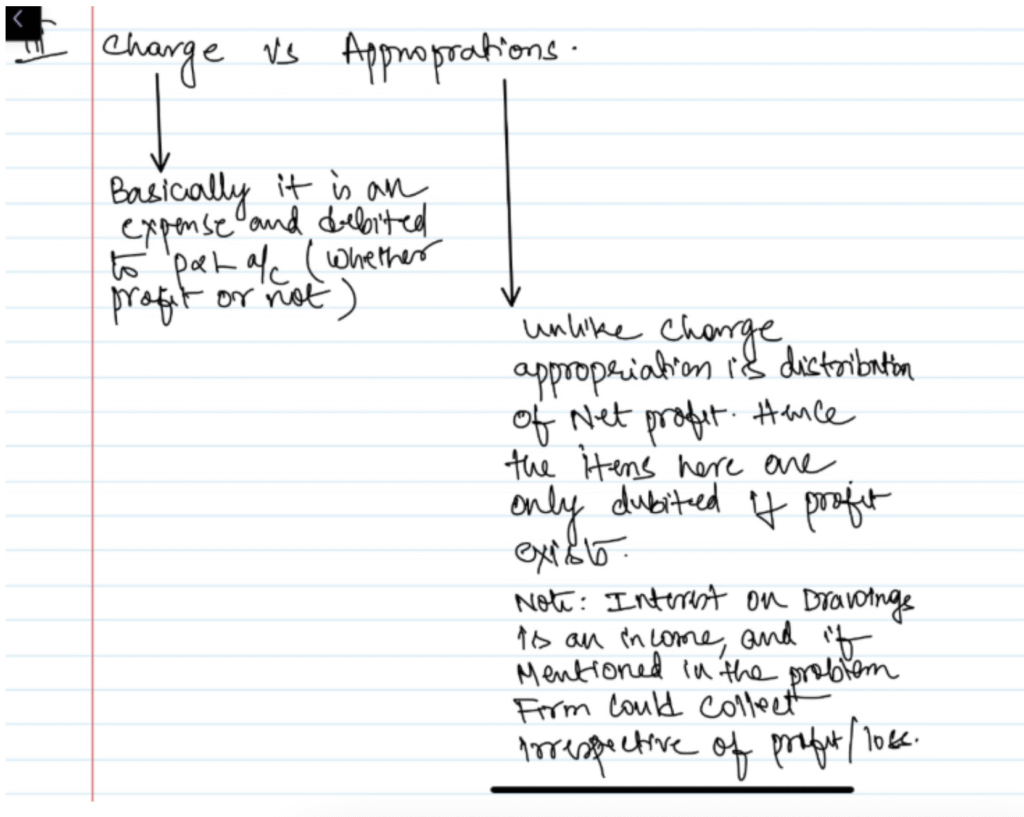 III Charge vs Appnoprations.
Basically it is an
expense and debited
to P&L a/c (whether
profit or not)
unlike Charge
appropriation is distribution
of Net profit. Hence
the items here are
only dubited if profit
exists.
Note: Interest on Drawings
is an income, and if
Mentioned in the problem
Firm could collect
irrespective of profit/loss.